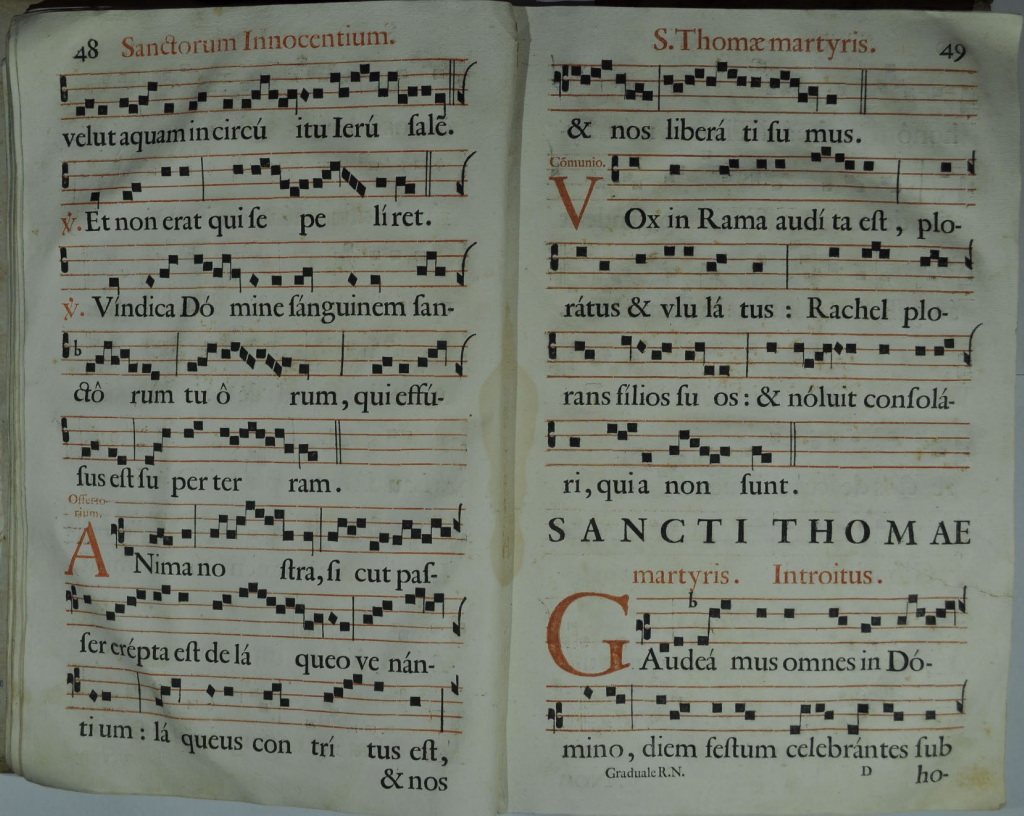 48 Sanctorum Innocentium.
velut aquam in circú itu Ierú salẽ.
℣. Et non erat qui se pe lí ret.
℣. Víndica Dó mine sánguinem san-
ctô rum tu ô rum, qui effú-
sus est su per ter ram.
Offerto-
rium.
ANima no stra, si cut pas-
ser erépta est de lá queo ve nán-
ti um : lá queus con trí tus est,
& nos
S. Thomæ martyris. 49
& nos liberá ti su mus.
Cómunio.
VOx in Rama audí ta est, plo-
rátus & vlu lá tus : Rachel plo-
rans fílios su os : & nóluit consolá-
ri, quia non sunt.
SANCTI THOMAE
martyris. Introitus.
GAudeá mus omnes in Dó-
mino, diem festum celebrántes sub
Graduale R.N. D ho-